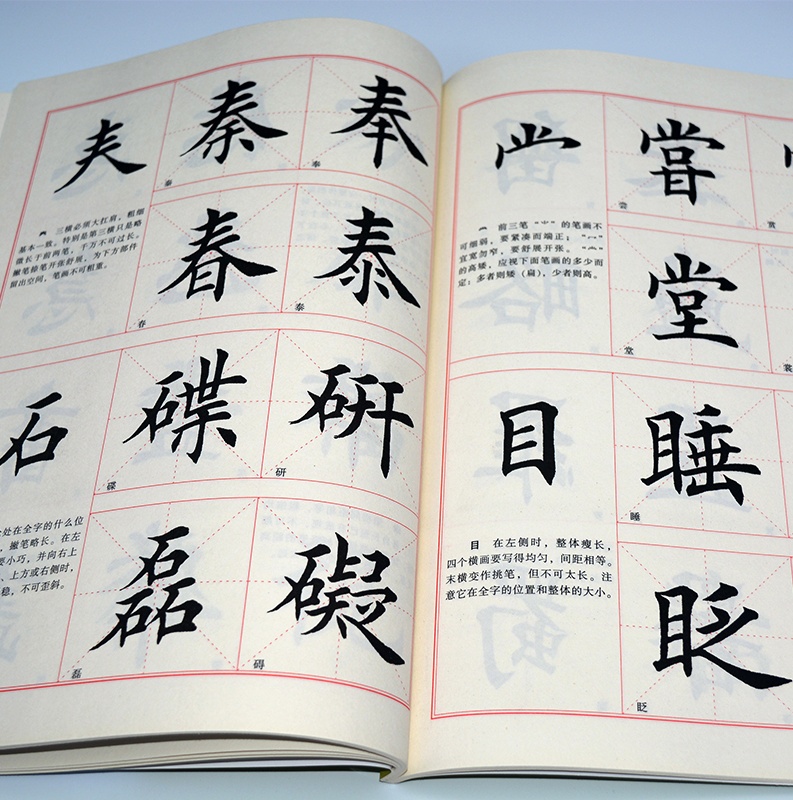 𡗗 秦 奉
秦 奉
𡗗 三横必须大扛肩，粗细
基本一致。特别是第三横只是略
微长于前两笔，千万不可过长。
撇笔捺笔开张舒展，为下方部件
留出空间，笔画不可粗重。
春 泰
春 泰
石 碟 研
碟 研
处在全字的什么位
，撇笔略长。在左
要小巧，并向右上
，上方或右侧时，
稳，不可歪斜。
磊 礙
磊 碍
龸 嘗
尝 赏
龸 前三笔“⺌”的笔画不
可细弱，要紧凑而端正；“冖”
宜宽勿窄，要舒展开张。“龸”
的高矮，应视下面笔画的多少而
定：多者则矮（扁），少者则高。
堂
堂 裳
目 睡
睡
目 在左侧时，整体瘦长，
四个横画要写得均匀，间距相等。
末横变作挑笔，但不可太长。注
意它在全字的位置和整体的大小。
眨
眨